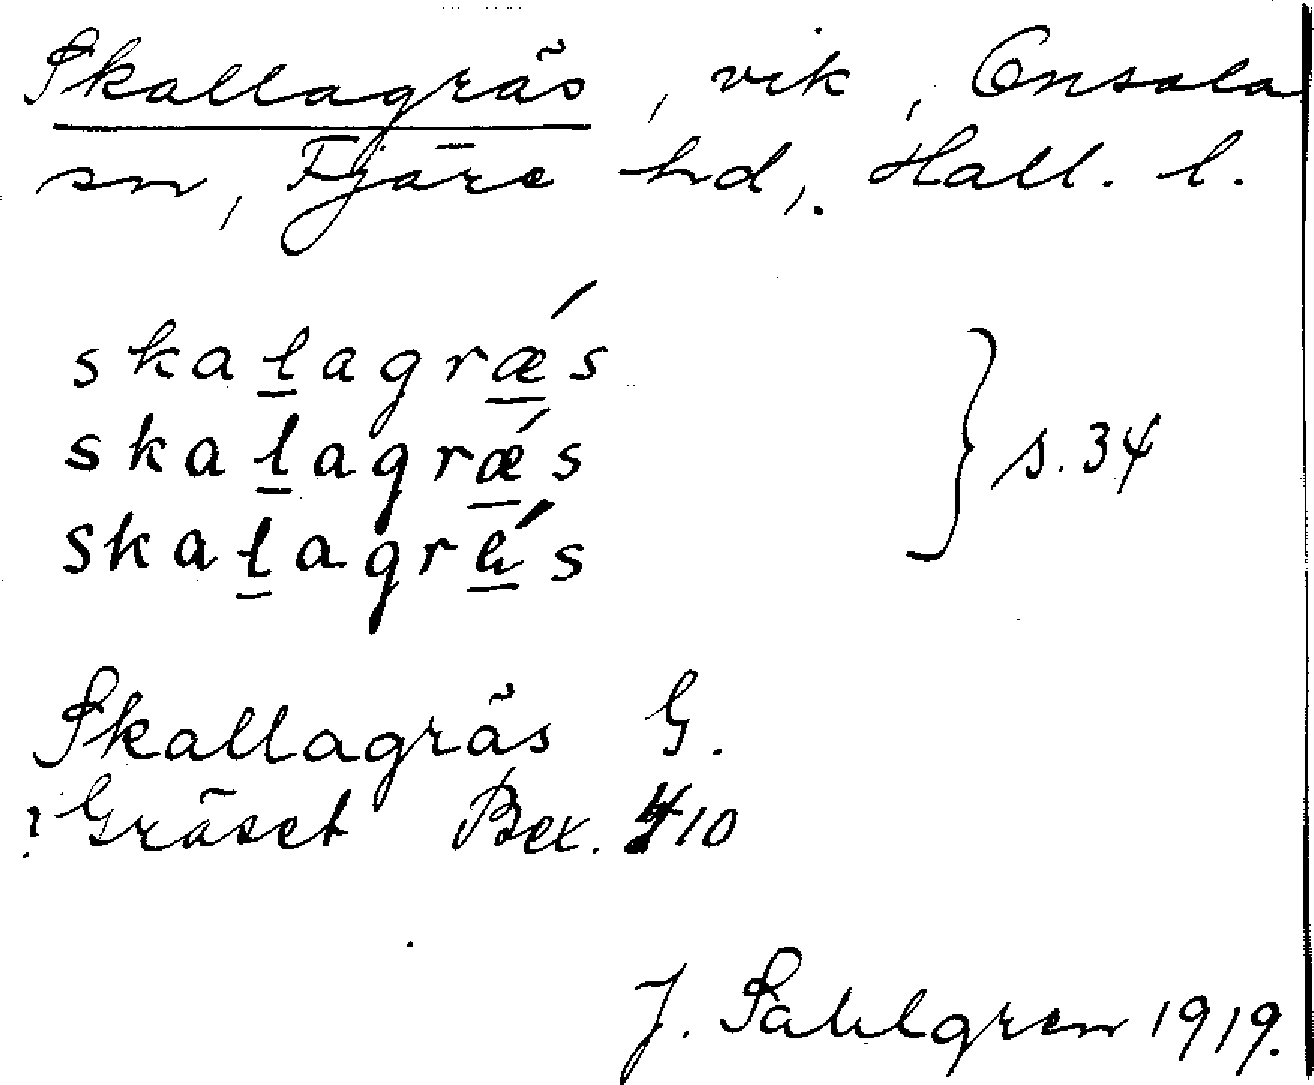 Skallagräs, vik, Onsala
sn, Fjäre hd, Hall. l.
skalagrǽs
skalagrǽs
skalagrés
} s. 34
Skallagräs G.
? Gräset Bex. 410
J. Sahlgren 1919.